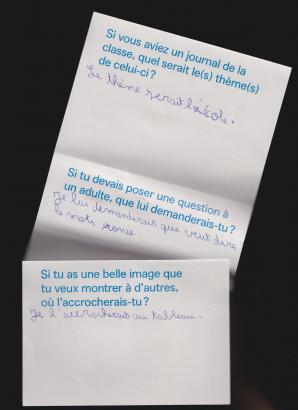 Si vous aviez un journal de la
classe, quel serait le(s) thème(s)
de celui-ci ?
Le thème serait l'école.
Si tu devais poser une question à
un adulte, que lui demanderais-tu ?
Je lui demanderais que veut dire
le mots
Si tu as une belle image que
tu veux montrer à d'autres,
où l'accrocherais-tu ?
Je l'accrocherais au tableau.